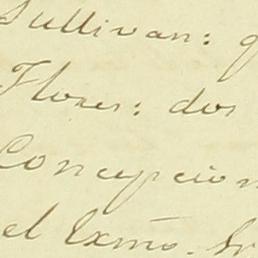 Sullivan: q
Flores: dos
Concepcion
el Exmo. Sr